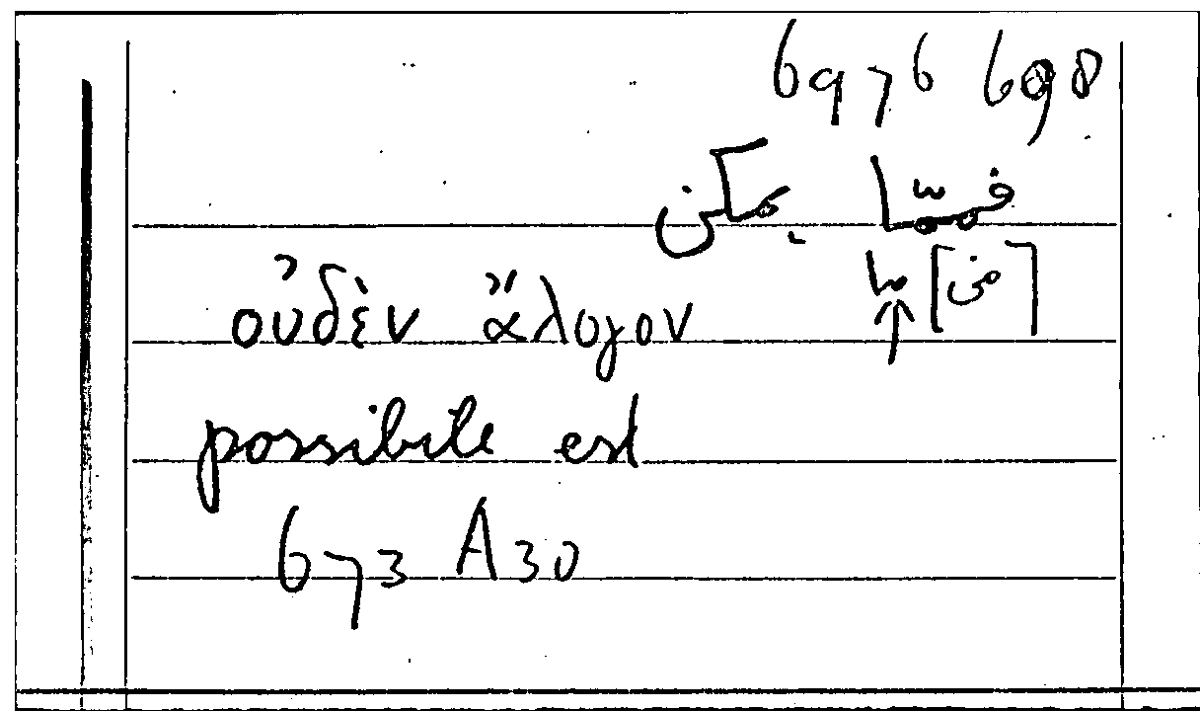 6976 698
فمما يمكن
ما [من]
οὐδὲν ἄλογον
possibile est
673 A30